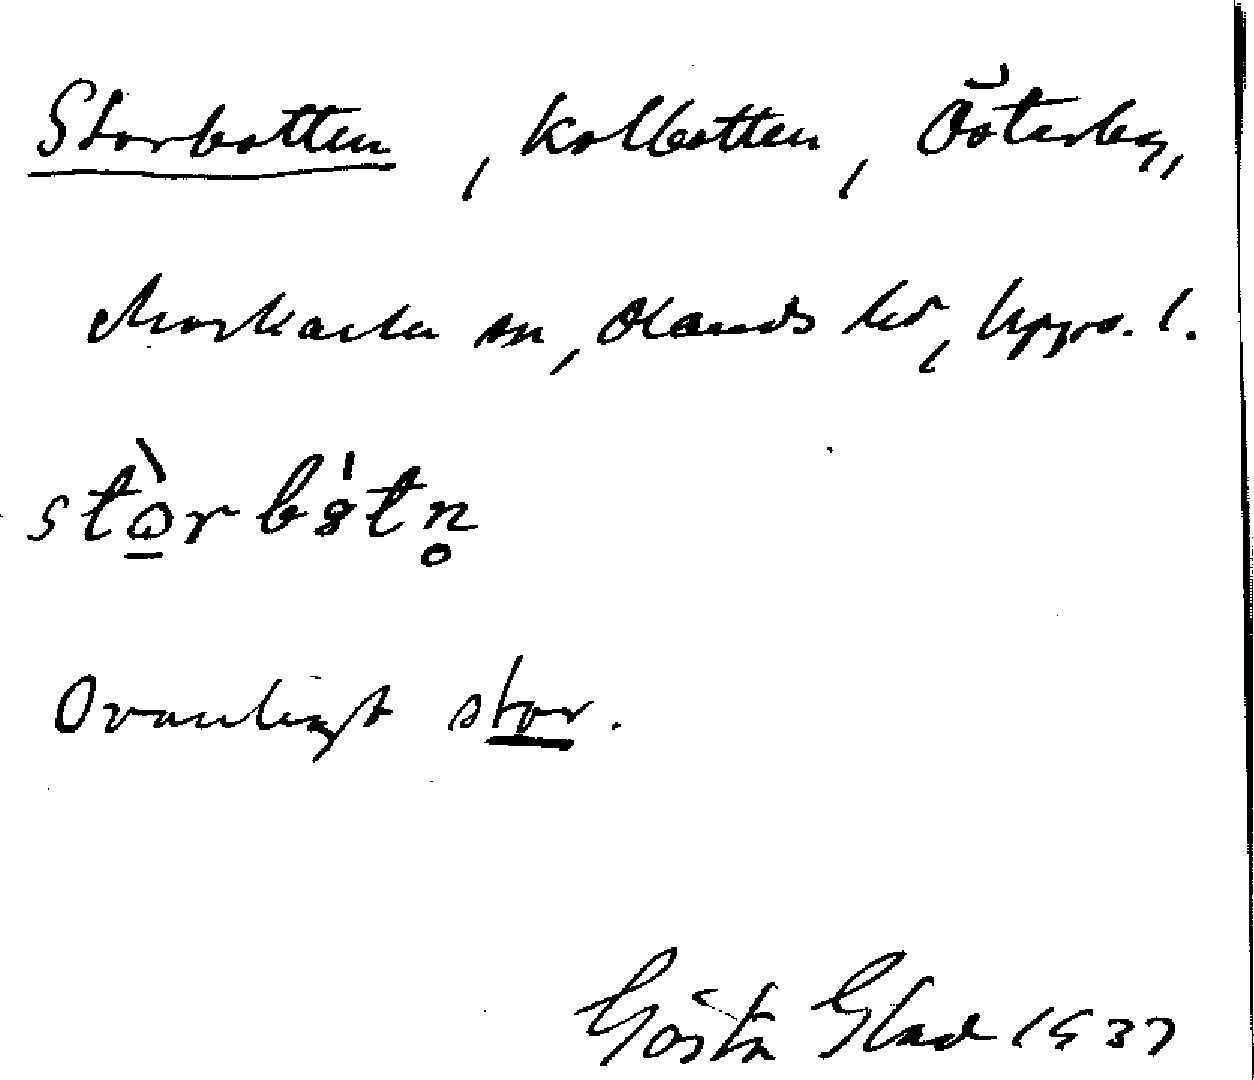 Storbotten, kolbotten, Österby,
Morkarla sn, Olands hd, Upps. l.
stòrbòtn̥
Ovanligt stor.
Gösta Glad 1937